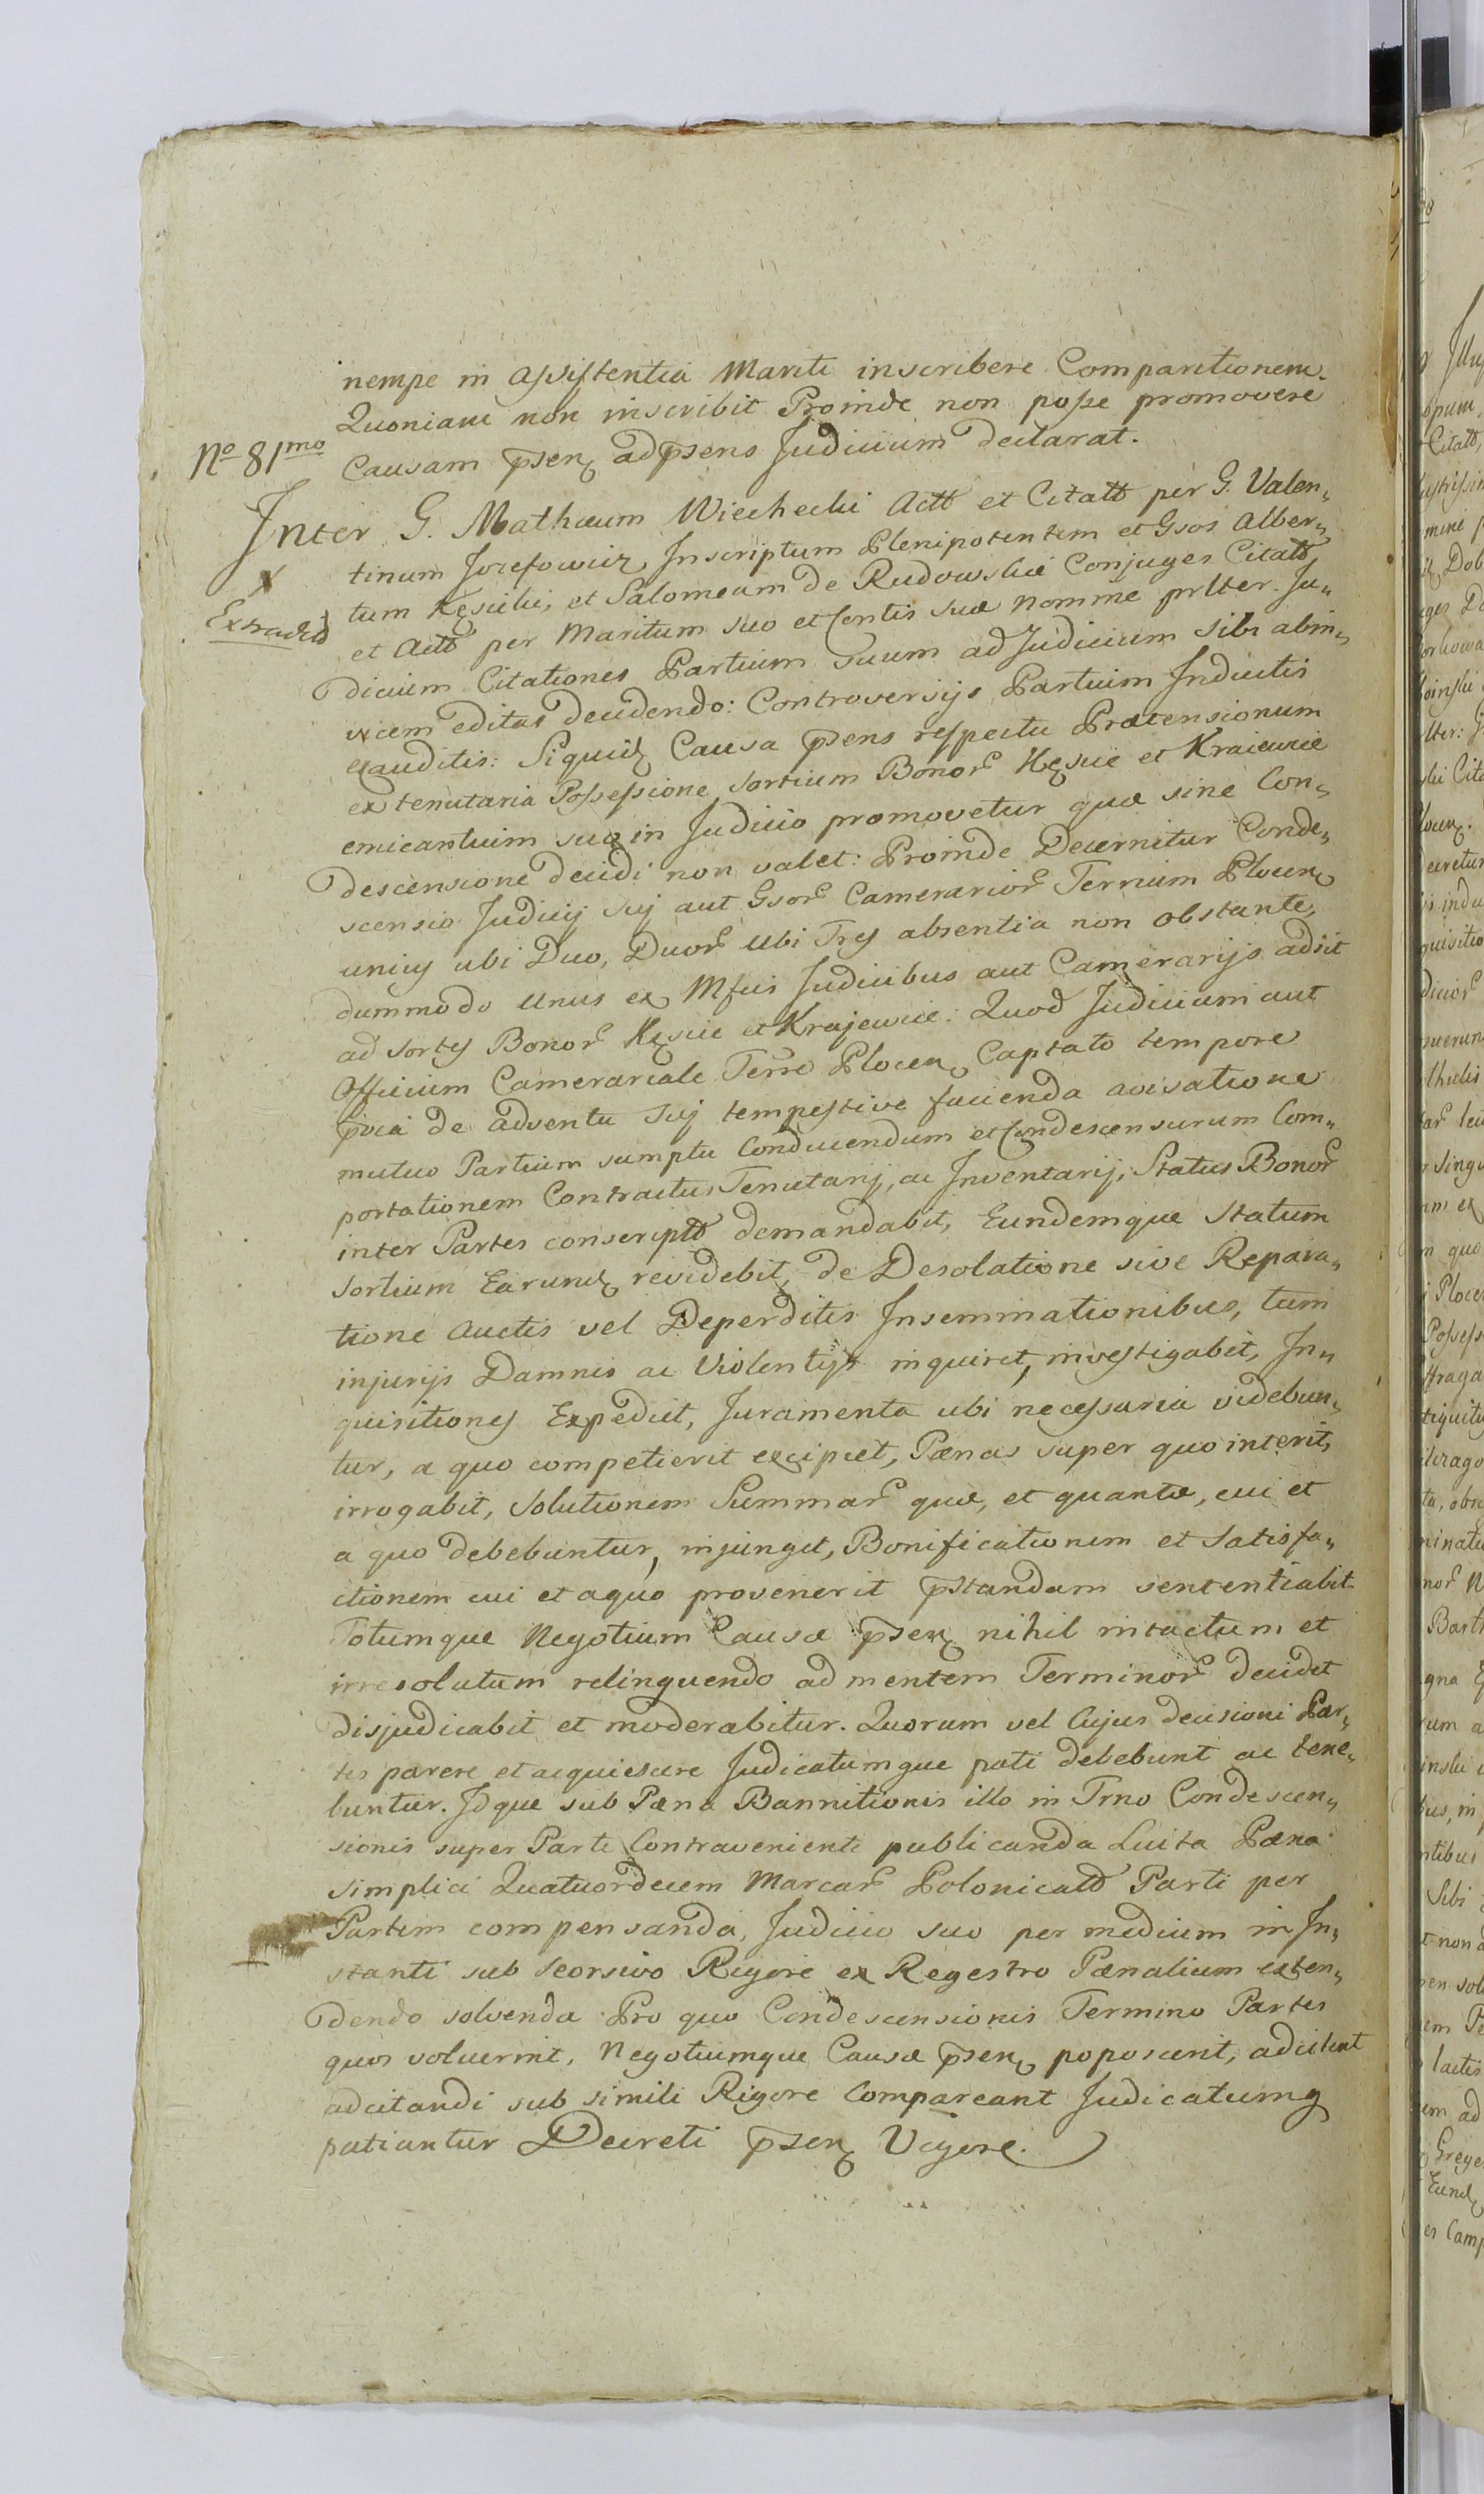 nempe in assistentia Mariti inscribere Comparitionem.
Quoniam non inscribit Proinde non posse promovere
No 81mo
Causam pñsen adpñsens Judicium declarat.
Inter G. Mathæum Wiechecki Actt et Citatt per G. Valen„
tinum Jozefowicz Inscriptum Plenipotentem et Gsos Alber„
X
Extradid
tum Kęsicki, et Salomeam de Rudowskie Conjuges Citatt
et Actt per Maritum suo et Contis suæ nomine prltter. Ju„
dicium Citationes Partium Suum ad Judicium sibi abin„
vicem editas decidendo: Controversijs Partium Inductis
exauditis: Siquid Causa pñsens respectu Prætensionum
ex tenutaria Possessione Sortium Bonor Kęsice et Kraiewice
emicantium suo in Judicio promovetur quæ sine Con„
descensione decidi non valet: Proinde Decernitur Conde„
scensio Judicij sui aut Gsor Camerarior Terrium Plocen
unius ubi Duo, Duor ubi Tres absentia non obstante,
dummodo unus ex Mfcis Judicibus aut Camerarijs adsit
ad Sortes Bonor Kęsice et Krajewice. Quod Judicium aut
Officium Camerariale Terre Plocen Captato tempore
pvia de adventu sui tempestive facienda avisatione
mutuo Partium sumptu Conducendum et Condescensurum Com„
portationem Contractus Tenutarij, ac Inventarij, Status Bonor
inter Partes conscriptt demandabit, Eundemque Statum
Sortium Earund revidebit, de Desolatione sive Repara„
tione Auctis vel Deperditis Inseminationibus, tum
injurijs Damnis ac Violentijs inquiret, investigabit, In„
quisitiones Expediet, Juramenta ubi necessaria videbun„
tur, a quo competierit excipiet, Pænas super quo interit,
irrogabit, Solutionem Summar quæ, et quantæ, cui et
a quo debebuntur, injunget, Bonificationem et Satisfa„
ctionem cui et aquo provenerit pstandam sententiabit
Totumque Negotium Causæ pñsen nihil intactum et
irresolutum relinquendo ad mentem Terminor decidet
disjudicabit et moderabitur. Quorum vel Cujus decisioni Par„
tes parere et acquiescere Judicatumque pati debebunt ac tene„
buntur. Idque sub Pæna Bannitionis illo in Trno Condescen„
sionis super Parte Contraveniente publicanda Luita Pæna
simplici Quatuordecem Marcar Polonicatt Parti per
Partem compensanda, Judicio suo per medium in In„
stanti sub seorsivo Rigore ex Regestro Pænalium exten„
dendo solvenda Pro quo Condescensionis Termino Partes
quos voluerint, Negotiumque Causæ pñsen poposcerit, adcitent
adcitandi sub simili Rigore Compareant Judicatumq
patiantur Decreti pñsen Vigore.